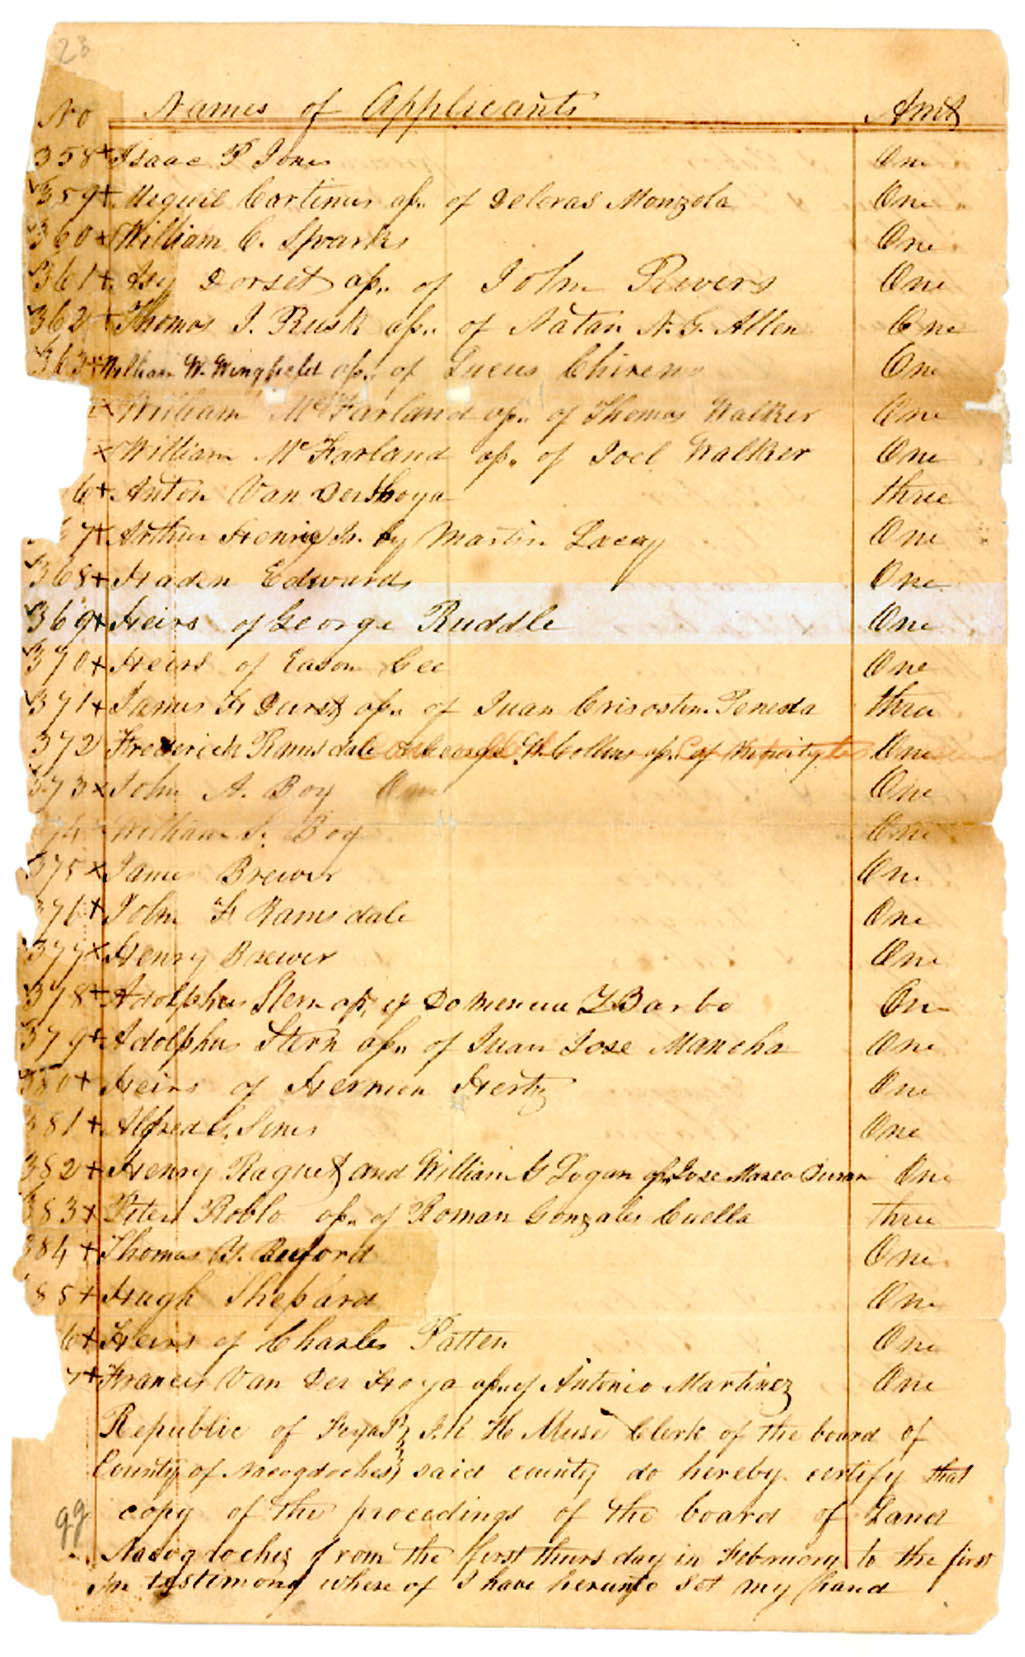 23
No Names of Applicants Amt
358+ Isaac P Jones One
359+ Miguil Cortinus ap.. of Deloras Monzola One
360+ William C. Sparks One
361+ Asy Dorset ap.. of John Revers One
362+ Thomas J. Rusk ap.. of Natan N. G. Allen One
363+ William W. Wingfield ap.. of Lucus Chireno One
x William McFarland ap.. of Thomas Walker One
x William McFarland ap. of Joel Walker One
6+ Anton Van Derhoya three
7+ Arthur Henrie Jr. by Martin Lacey One
368+ Haden Edwards One
369+ Heirs of George Ruddle One
370+ Heirs of Eason Gee One
371+ James H Durst ap.. of Juan Crisostem Teneda three
372 Frederick Ramsdale George W. Collins ap. of One
373x John A. Boy One One
74 William S. Boy One
375x James Brewer One
376+ John F Ramsdale One
377x Henry Brewer One
378+ Adolphus Stern ap. of Domencia Y Barbo One
379+ Adolphus Stern ap.. of Juan Jose Mancha One
380+ Heirs of Hermen Hertz One
381+ Alfred G. Simes One
382+ Henry Raguet and William G Logan of Jose Maria Duran One
383x Peter Roblo ap.. of Roman Gonzales Cuella three
384+ Thomas Y. Buford One
85+ Hugh Shepard One
6+ Heirs of Charles Patten One
7+ Francis Van Der Hoya ap.. of Antonio Martinez One
Republic of Texas } I. K H Muse Clerk of the board of
County of Nacogdoches } said county do hereby certify that
copy of the proceedings of the board of Land
Nacogdoches from the first thursday in February to the first
In testimony where of I have herunto set my hand
99